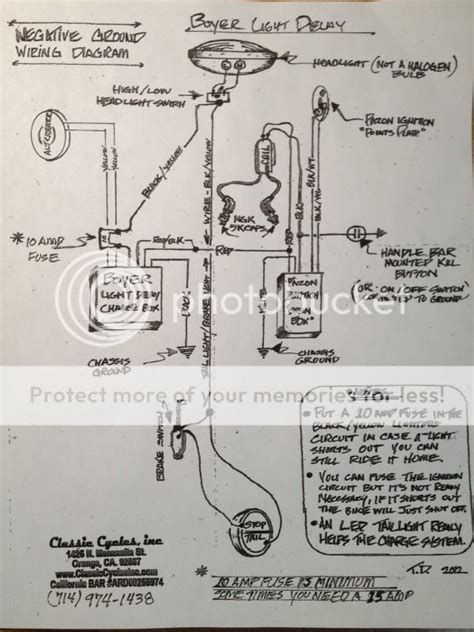 NEGATIVE GROUND
WIRING DIAGRAM
BOYER LIGHT DELAY
HEADLIGHT (NOT A HALOGEN)
BULB
HIGH/LOW
HEADLIGHT SWITCH
PAZON IGNITION
"POINTS PLATE"
ALTERNATOR
BLACK/YELLOW
WIRE - BLK/YELLOW
COIL
NGK
5K CAPS
BLK/YEL
BLK/WHT
* 10 AMP
FUSE
RED/BLK
RED
RED
BOYER
LIGHT DELAY
CHARGE BOX
PAZON
IGNITION
BOX"
HANDLE BAR
MOUNTED KILL
BUTTON
(OR - ON/OFF SWITCH
CONNECTED TO GROUND)
CHASSIS
GROUND
TAIL LIGHT/BRAKE LIGHT
CHASSIS
GROUND
photobucket
Protect more of your memories for less!
BRAKE SWITCH
STOP
TAIL
• PUT A 10 AMP FUSE IN THE
BLACK/YELLOW LIGHTING
CIRCUIT IN CASE A LIGHT
SHORTS OUT YOU CAN
STILL RIDE IT HOME.
• YOU CAN FUSE THE IGNITION
CIRCUIT BUT IT'S NOT REALLY
NECESSARY, IF IT SHORTS OUT
THE BIKE WILL JUST SHUT OFF.
• AN LED TAILLIGHT REALLY
HELPS THE CHARGE SYSTEM.
T.D. 2012
Classic Cycles, inc
1425 N. Manzanita St.
Orange, CA. 92867
www.ClassicCyclesinc.com
California BAR #ARD00256974
(714) 974-1138
* 10 AMP FUSE IS MINIMUM
SOME TIMES YOU NEED A 15 AMP